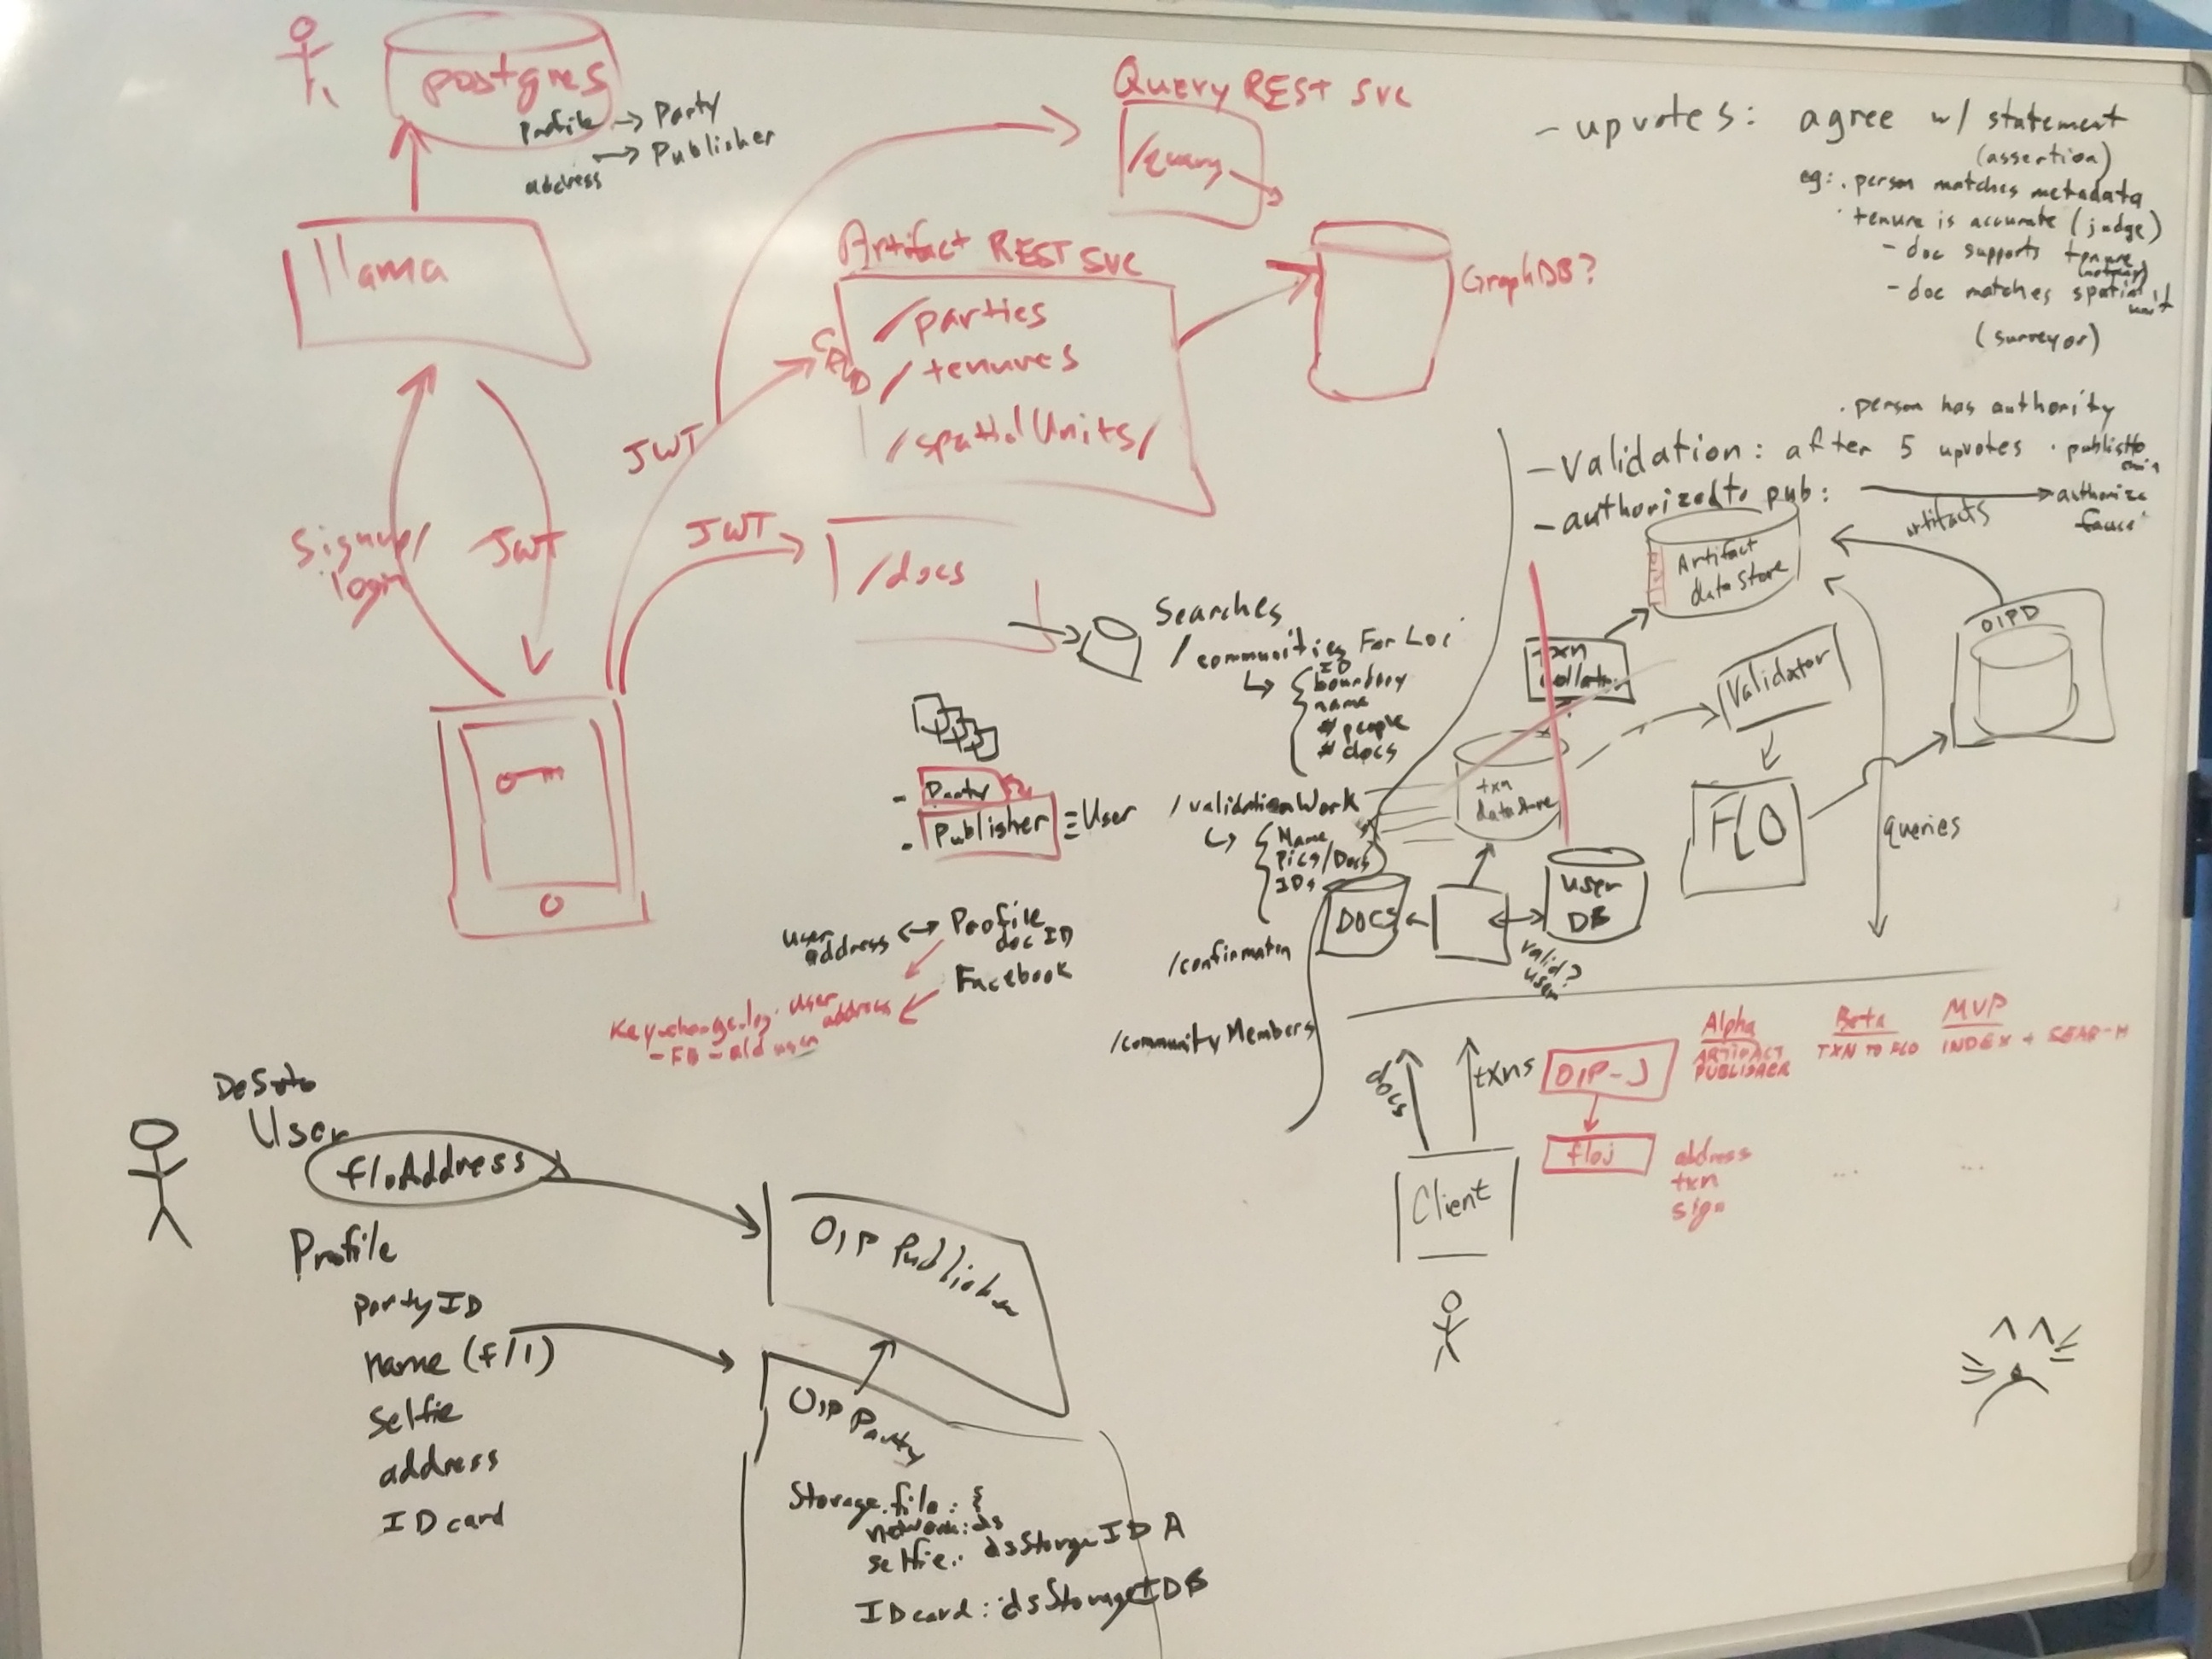 postgres
Profile → Party
address → Publisher
llama
Signup/
login
JWT
JWT
JWT
Query REST SVC
/query
Artifact REST SVC
CRUD
/parties
/tenures
/spatialUnits/
/docs
GraphDB?
- upvotes: agree w/ statement
(assertion)
eg: . person matches metadata
· tenure is accurate (judge)
- doc supports tenure
- doc matches spatial
unit
(surveyor)
. person has authority
- Validation: after 5 upvotes
- authorized to pub: → authorize
artifacts
Artifact
data store
OIPD
txn
Validator
txn
data store
FLO
queries
user
DB
DOCS
valid?
user
Searches
/communities For Loc
ID
boundary
name
# people
# docs
/validationWork
Name
Pics/Docs
IDs
/confirmation
/communityMembers
- Party
- Publisher ≡ User
user
address ↔ Profile
doc ID
Facebook
user
address
docs
txns
Client
OIP-J
floj
address
txn
sign
Alpha
ARTIFACT
PUBLISHER
Beta
TXN TO FLO
...
MVP
INDEX + SEARCH
...
DeSoto
User
floAddress
Profile
partyID
name (f/l)
selfie
address
ID card
OIP Publisher
OIP Party
Storage.file: {
network: ds
selfie: dsStorageID A
IDcard: dsStorageIDB